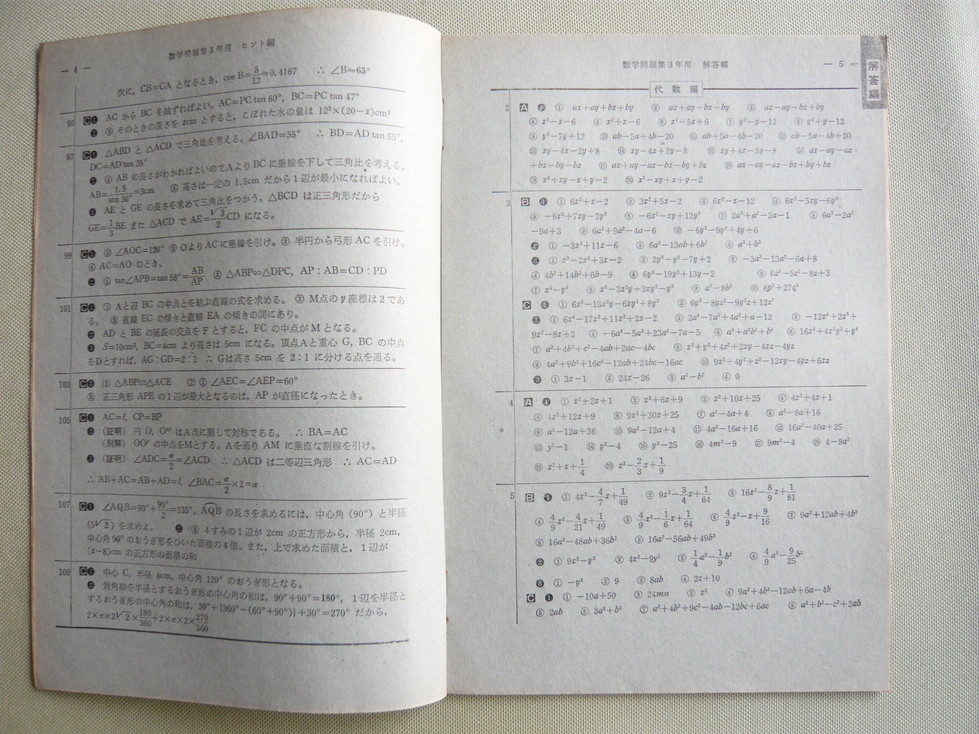 — 4 —
数学問題集3年用 ヒント編
次に，CB=CA となるとき，cos B=5/12≒0.4167 ∴ ∠B≒65°
95 C❶ AC から BC を減ずればよい。AC=PC tan 60°，BC=PC tan 47°
❷ ③ そのときの深さを zcm とすると，こぼれた水の量は 12²×(20−z)cm³
97 C❶ △ABD と △ACD で三角比を考える。∠BAD=55° ∴ BD=AD tan 55°，
DC=AD tan 35°
❷ ① AB の長さがわかればよいのでAより BC に垂線を下して三角比を考える。
AB=1.5/sin 30°=3cm ② 高さは一定の 1.5cm だから1辺が最小になればよい。
❸ AE と GE の長さを求めて三角比をつかう。△BCD は正三角形だから
GE=1/3BE また △ACD で AE=√3/2CD になる。
99 C❶ ① ∠AOC=120° ② OよりACに垂線を引け。③ 半円から弓形 AC を引け。
④ AC=AO のとき。
❷ ① tan∠APB=tan 58°=AB/AP ② △ABP∽△DPC，AP：AB=CD：PD
101 C❶ ① Aと辺 BC の中点とを結ぶ直線の式を求める。② M点の y 座標は2であ
る。③ 直線 EC の傾きと直線 EA の傾きの間にあり。
❷ AD と BE の延長の交点を F とすると，FC の中点が M となる。
❸ S=10cm²，BC=4cm より高さは 5cm になる。頂点Aと重心 G，BC の中点
をDとすれば，AG：GD=2：1 ∴ Gは高さ 5cm を 2：1 に分ける点を通る。
103 C❶ (1) △ABP≡△ACE (2) ① ∠AEC=∠AEP=60°
② 正三角形 APE の1辺が最大となるのは，AP が直径になったとき。
105 C❶ AC=l，CP=BP
❷ (証明) 円 O，O′ はA点に関して対称である。 ∴ BA=AC
(別解) OO′ の中点をMとする。Aを通り AM に垂直な割線を引け。
❸ (証明) ∠ADC=a/2=∠ACD ∴ △ACD は二等辺三角形 ∴ AC=AD
∴ AB+AC=AB+AD=l，∠BAC=a/2×2=a
107 C❶ ∠AQB=90°+90°/2=135°，AQB の長さを求めるには，中心角 (90°) と半径
(5√2) を求めよ。 ❷ ③ 4すみの1辺が 2cm の正方形から，半径 2cm，
中心角 90° のおうぎ形をひいた面積の4倍。また，上で求めた面積と，1辺が
(x−8)cm の正方形の面積の和
109 C❶ 中心 C，半径 4cm，中心角 120° のおうぎ形となる。
❷ 対角線を半径とするおうぎ形の中心角の和は，90°+90°=180°，1辺を半径と
するおうぎ形の中心角の和は，30°+{360°−(60°+90°)}+30°=270° だから，
2×π×2√2×180/360+2×π×2×270/360
数学問題集3年用 解答編
— 5 —
解答編
代数編
2 A ❶ ① ax+ay+bx+by ② ax+ay−bx−by ③ ax−ay−bx+by
④ x²−x−6 ⑤ x²+x−6 ⑥ x²−5x+6 ⑦ y²−y−12 ⑧ y²+y−12
⑨ y²−7y+12 ⑩ ab−5a+4b−20 ⑪ ab+5a−4b−20 ⑫ ab−5a−4b+20
⑬ xy−4x−2y+8 ⑭ xy−4x+2y−8 ⑮ xy+4x−2y−8 ⑯ ax−ay−az
+bx−by−bz ⑰ ax+ay−az−bx−by+bz ⑱ ax−ay−az−bx+by+bz
⑲ x²+xy−x+y−2 ⑳ x²−xy+x+y−2
3 B ❶ ① 6x²+x−2 ② 3x²+5x−2 ③ 6x²−x−12 ④ 6x²−5xy−6y²
⑤ −6x²+7xy−2y² ⑥ −6x²−xy+12y² ⑦ 2a³+a²−2a−1 ⑧ 6a³−2a²
−9a+3 ⑨ 6a³+9a²−4a−6 ⑩ −6y³−9y²+4y+6
❷ ① −3x²+11x−6 ② 6a²−13ab+6b² ③ a³+b³
❸ ① x³−2x²+3x−2 ② 2y³−y²−7y+2 ③ −3a³−13a²−6a+8
④ 4b³+14b²+6b−9 ⑤ 6y³−19y²+13y−2 ⑥ 6x³−5x²−8x+3
⑦ x³−y³ ⑧ x³−3x²y+3xy²−y³ ⑨ a³−8b³ ⑩ 8p³+27q³
C ❶ ① 6x³−13x²y−6xy²+8y³ ② 6y³−8yz²−9y²z+12z³
❷ ① 6x⁴−17x³+11x²+2x−2 ② 2a⁴−7a³+4a²+a−12 ③ −12x⁴+2x³+
9x²−8x+3 ④ −6a⁴−5a³+23a²−7a−5 ⑤ a⁴+a²b²+b⁴ ⑥ 16x⁴+4x²y²+y⁴
⑦ a²+4b²+c²−4ab+2ac−4bc ⑧ x²+y²+4z²+2xy−4xz−4yz
⑨ 4a²+9b²+16c²−12ab+24bc−16ac ⑩ 9x²+4y²+z²−12xy−4yz+6xz
❸ ① 3x−1 ② 24x−26 ③ a²−b² ④ 0
4 A ❶ ① x²+2x+1 ② x²+6x+9 ③ x²+10x+25 ④ 4x²+4x+1
⑤ 4x²+12x+9 ⑥ 9x²+30x+25 ⑦ a²−4a+4 ⑧ a²−8a+16
⑨ a²−12a+36 ⑩ 9a²−12a+4 ⑪ 4a²−16a+16 ⑫ 16a²−40a+25
⑬ y²−1 ⑭ y²−4 ⑮ y²−25 ⑯ 4m²−9 ⑰ 9m²−4 ⑱ 4−9a²
⑲ x²+x+1/4 ⑳ x²−2/3x+1/9
5 B ❶ ① 4x²−4/7x+1/49 ② 9x²−3/4x+1/64 ③ 16x²−8/9x+1/81
④ 4/9x²−4/21x+1/49 ⑤ 4/9x²−1/6x+1/64 ⑥ 4/9x²−x+9/16 ⑦ 9a²+12ab+4b²
⑧ 16a²−48ab+36b² ⑨ 16a²−56ab+49b²
❷ ① 9x²−y² ② 4x²−9y² ③ 1/4a²−1/9b² ④ 4/9a²−9/25b²
❸ ① −y² ② 9 ③ 8ab ④ 2x+10
C ❶ ① −10a+50 ② 24mn ③ x⁴ ④ 9a²+4b²−12ab+6a−4b
⑤ 2ab ⑥ 3a²+b² ⑦ a²+4b²+9c²−4ab−12bc+6ac ⑧ a²+b²−c²+2ab